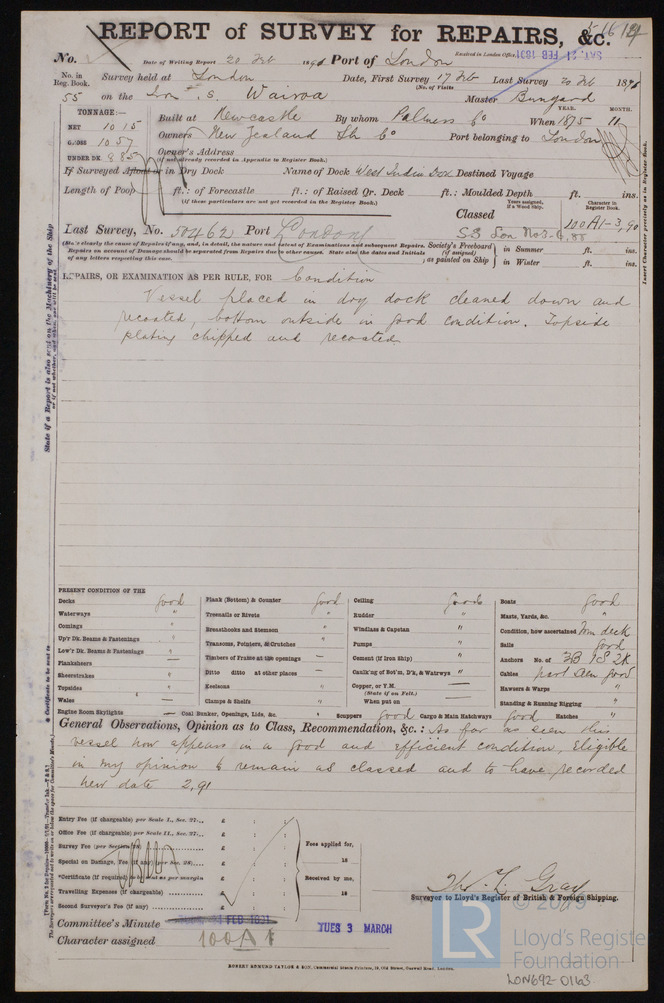 REPORT of SURVEY for REPAIRS, &c.
No. Date of Writing Report 20 Feb 1891 Port of London Received in London Office, SAT. 21 FEB 1891
No. in Reg. Book. Survey held at London Date, First Survey 17 Feb Last Survey 20 Feb 1891
(No. of Visits
55 on the Iron S. Wairoa Master Bungard
TONNAGE:—
NET 1015
GROSS 1057
UNDER DK. 985
Built at Newcastle By whom Palmers Co When 1875 YEAR. MONTH. 11
Owners New Zealand Sh Co Port belonging to London
Owner's Address
(if not already recorded in Appendix to Register Book.)
If Surveyed Afloat or in Dry Dock Name of Dock West India Dox Destined Voyage
Length of Poop ft.: of Forecastle ft.: of Raised Qr. Deck ft.: Moulded Depth ft. ins.
(if these particulars are not yet recorded in the Register Book.)
Years assigned, if a Wood Ship. Character in Register Book.
Classed 100A1-3,90
Last Survey, No. 50462 Port London
SS Lon No3-4,88
(State clearly the cause of Repairs if any, and, in detail, the nature and extent of Examinations and subsequent Repairs. Repairs on account of Damage should be separated from Repairs due to other causes. State also the dates and Initials of any letters respecting this case.
Society's Freeboard (if assigned) as painted on Ship in Summer ft. ins.
in Winter ft. ins.
REPAIRS, OR EXAMINATION AS PER RULE, FOR Condition
Vessel placed in dry dock cleaned down and
recoated, bottom outside in good condition. Topside
plating chipped and recoated.
PRESENT CONDITION OF THE
Decks good
Waterways "
Comings "
Up'r Dk. Beams & Fastenings "
Low'r Dk. Beams & Fastenings "
Planksheers —
Sheerstrakes "
Topsides "
Wales —
Engine Room Skylights — Coal Bunker, Openings, Lids, &c. "
Plank (Bottom) & Counter good
Treenails or Rivets "
Breasthooks and Stemson "
Transoms, Pointers, & Crutches "
Timbers of Frame at the openings —
Ditto ditto at other places —
Keelsons "
Clamps & Shelfs "
Scuppers good Cargo & Main Hatchways good Hatches "
Ceiling good
Rudder "
Windlass & Capstan "
Pumps "
Cement (if Iron Ship) "
Caulk'ng of Bot'm, D'k, & Watrwys "
Copper, or Y.M. —
(State if on Felt.)
When put on —
Boats good
Masts, Yards, &c. "
Condition, how ascertained from deck
Sails good
Anchors No. of 3B 1S 2K
Cables part seen good
Hawsers & Warps "
Standing & Running Rigging "
General Observations, Opinion as to Class, Recommendation, &c.: As far as seen this
vessel now appears in a good and efficient condition, eligible
in my opinion to remain as classed and to have recorded
new date 2,91
Entry Fee (if chargeable) per Scale I., Sec. 27:.. £ : :
Office Fee (if chargeable) per Scale II., Sec. 27:... £ : :
Survey Fee (per Section 28) £ : :
Special or Damage, Fee (if any) (per Sec. 28).... £ : :
*Certificate (if required) to be sent as per margin £ : :
Travelling Expenses (if chargeable) £ : :
Second Surveyor's Fee (if any) £ : :
Fees applied for,
18
Received by me,
18
Thos. L. Gray
Surveyor to Lloyd's Register of British & Foreign Shipping.
Committee's Minute TUES 24 FEB 1891 TUES 3 MARCH
Character assigned 100A1
ROBERT EDMUND TAYLOR & SON, Commercial Steam Printers, 19, Old Street, Goswell Road, London.
LR © 2019
Lloyd's Register
Foundation
LON692-0163